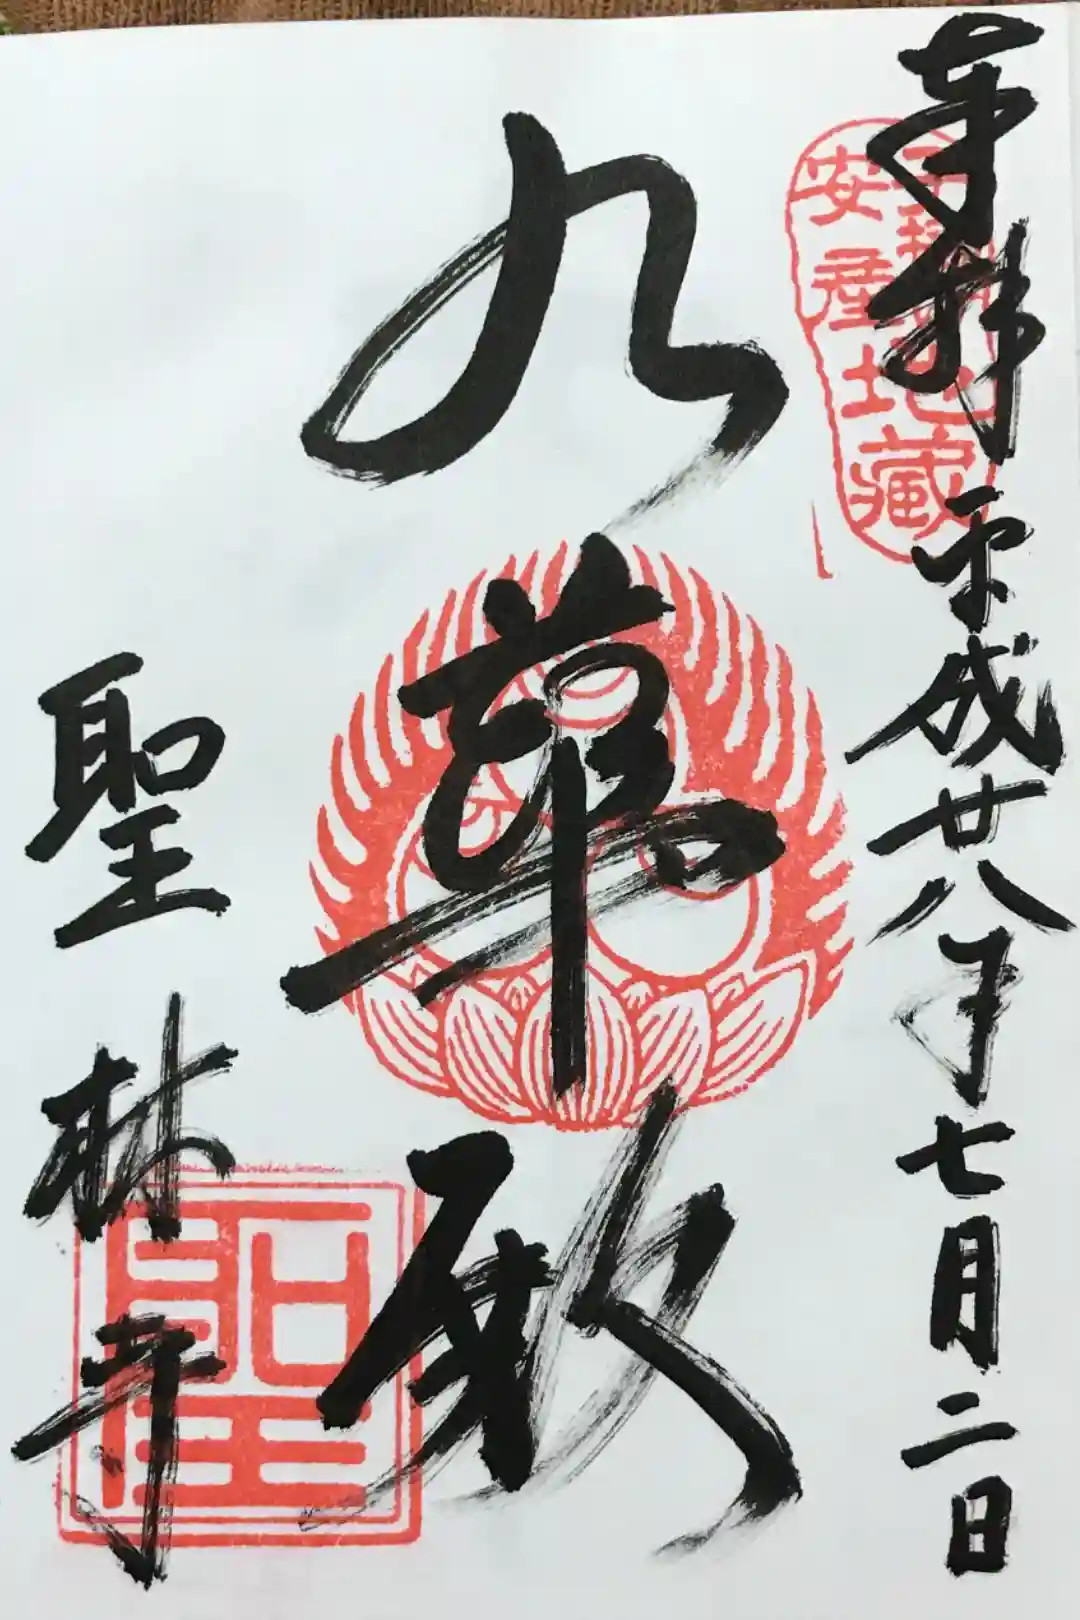 奉拝 平成廿八年七月二日
安産地藏
九華殿
聖林寺
聖